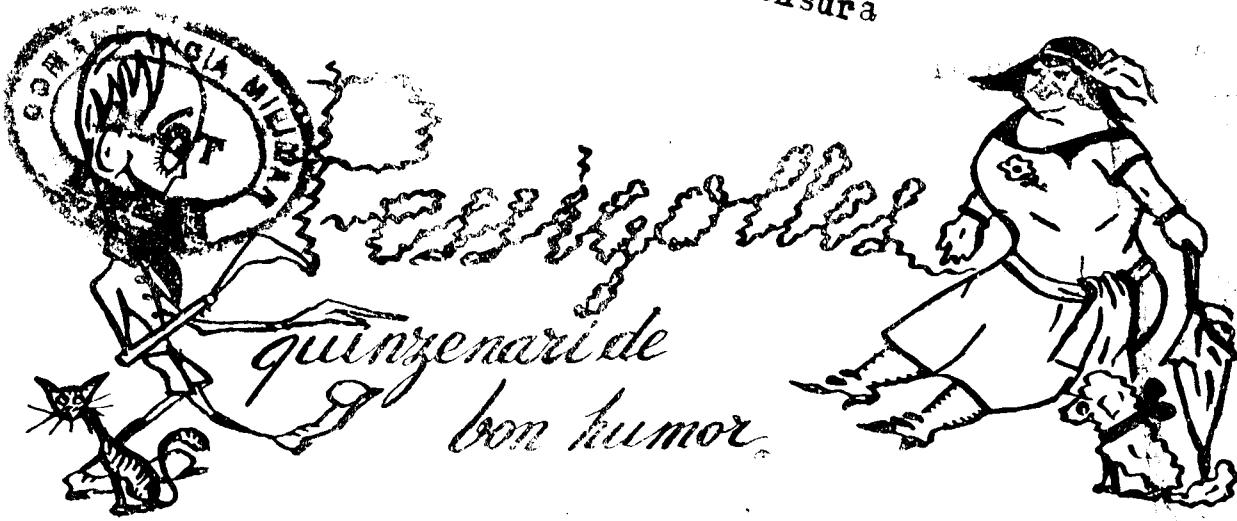 censura
Pessigolles
quinzenari de
bon humor